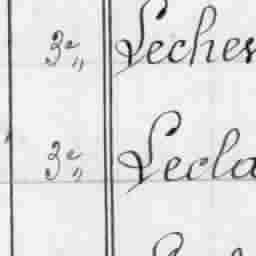 3e„ Leches
3e„ Lecla